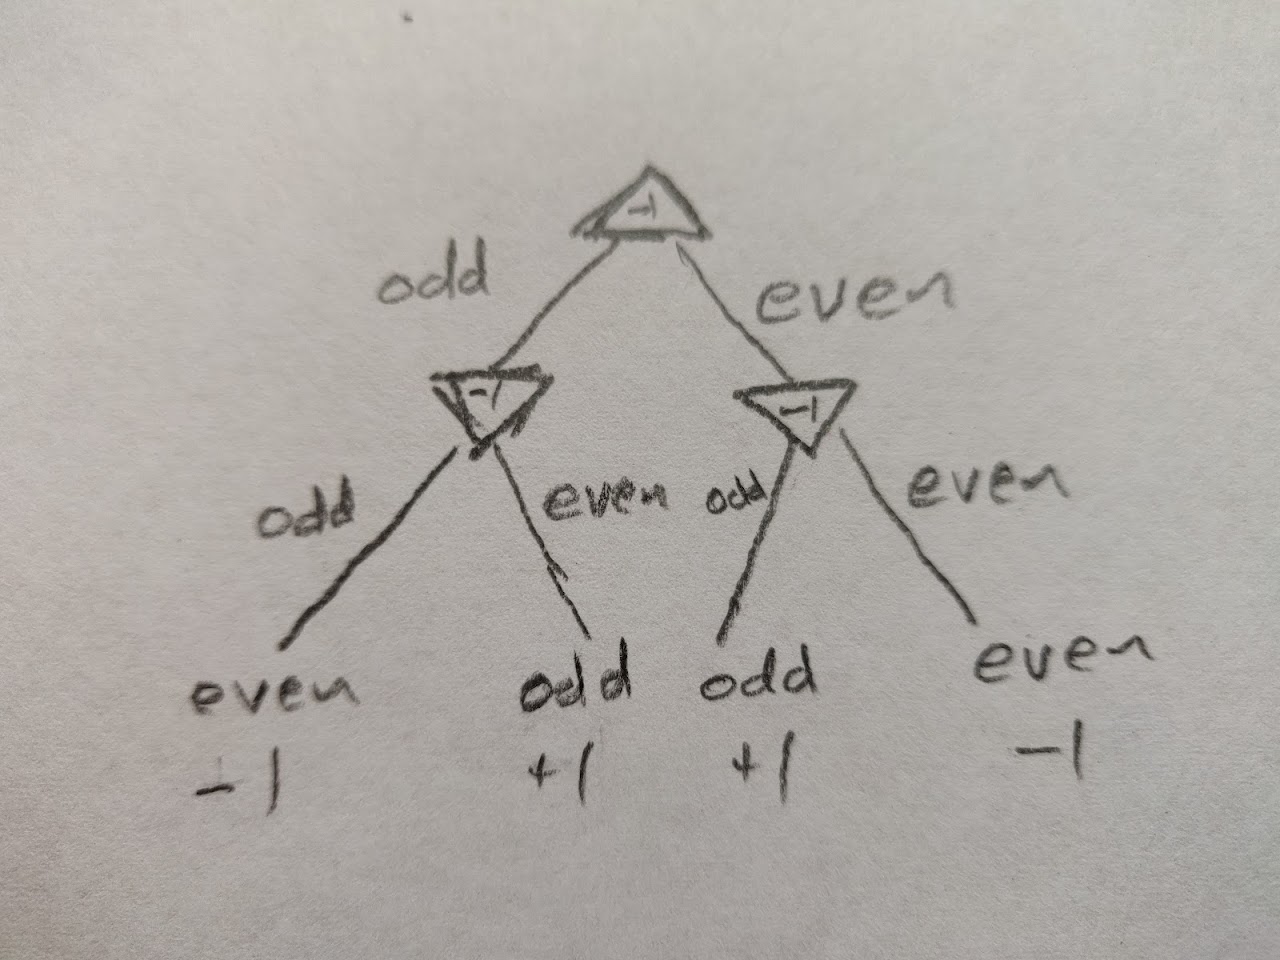 -1
odd even
-1 -1
odd even odd even
even odd odd even
-1 +1 +1 -1